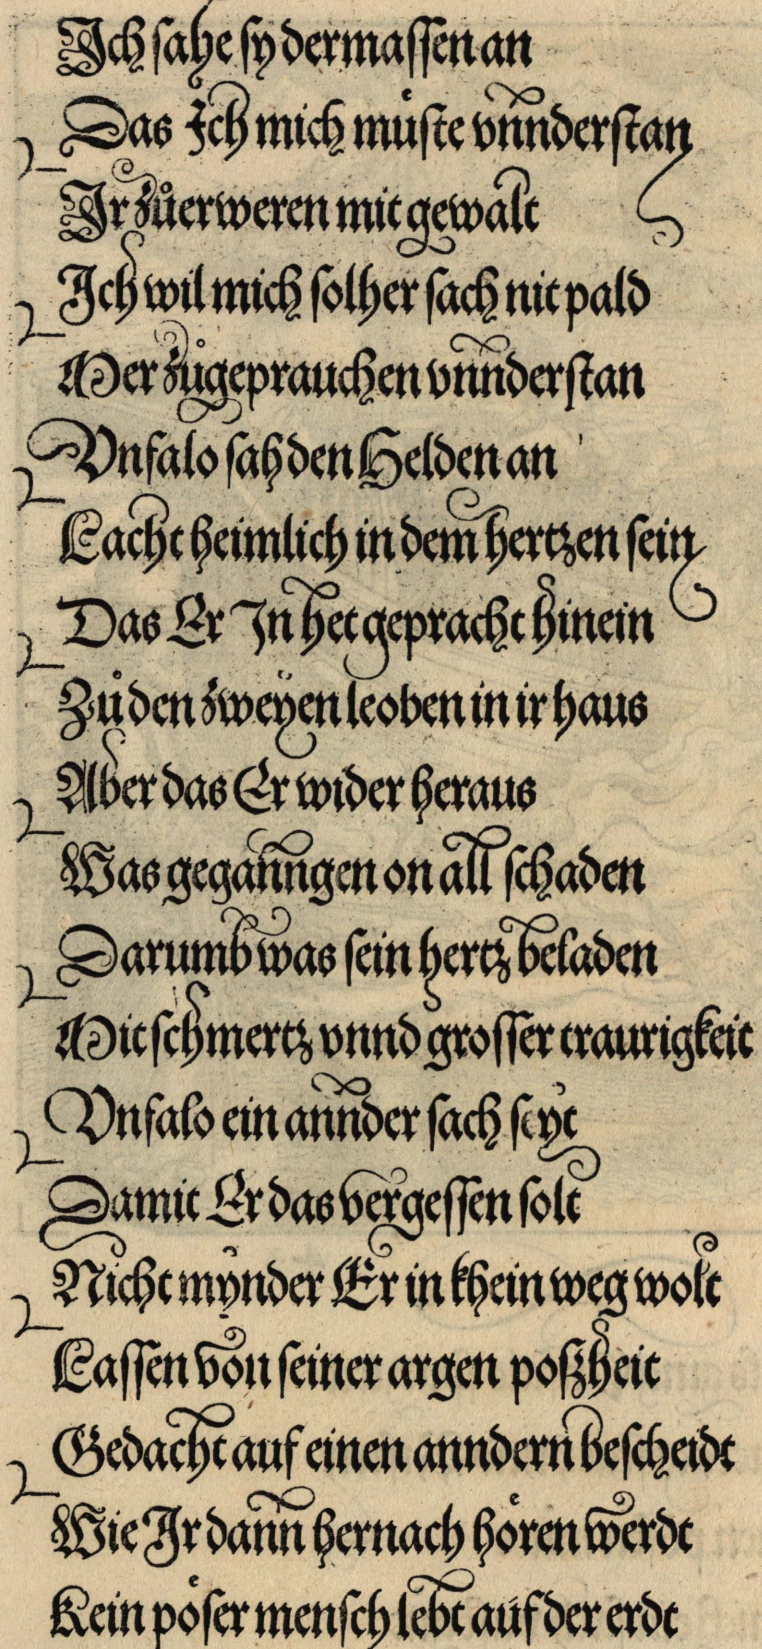 Ich sahe sy dermassen an
Das Ich mich müste vnnderstan
Ir zůerweren mit gewalt
Ich wil mich solher sach nit pald
Mer zůgeprauchen vnnderstan
Vnfalo sah den Helden an
Lacht heimlich in dem hertzen sein
Das Er In het gepracht hinein
Zů den zweyen leoben in ir haus
Aber das Er wider heraus
Was geganngen on all schaden
Darumb was sein hertz beladen
Mit schmertz vnnd grosser traurigkeit
Vnfalo ein annder sach seyt
Damit Er das vergessen solt
Nicht mynder Er in khein weg wolt
Lassen von seiner argen poszheit
Gedacht auf einen anndern bescheidt
Wie Ir dann hernach hören werdt
Kein pöser mensch lebt auf der erdt